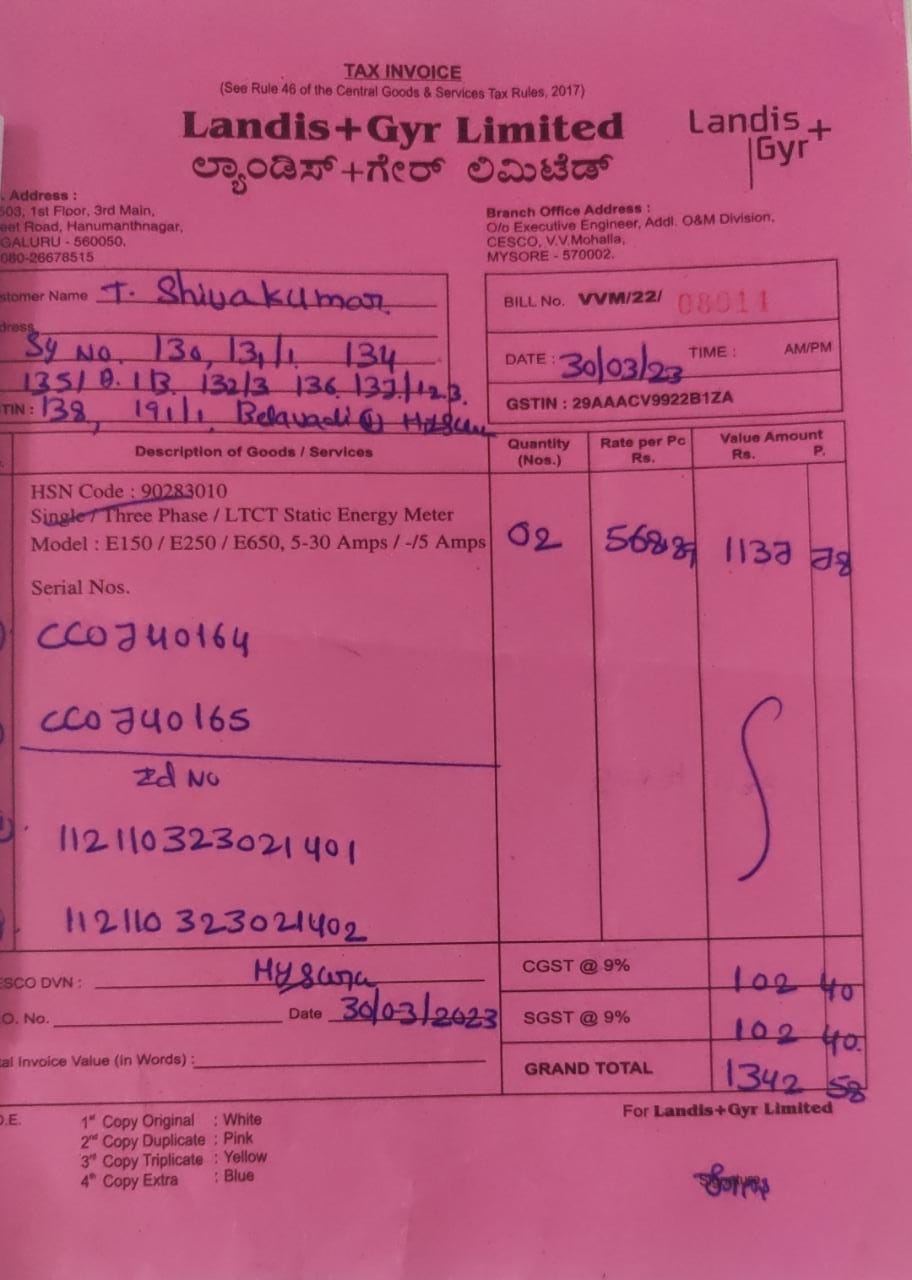 TAX INVOICE
(See Rule 46 of the Central Goods & Services Tax Rules, 2017)
Landis+Gyr Limited
Landis+
Gyr
ಲ್ಯಾಂಡಿಸ್+ಗೇರ್ ಲಿಮಿಟೆಡ್
. Address :
503, 1st Floor, 3rd Main,
eet Road, Hanumanthnagar,
GALURU - 560050.
080-26678515
Branch Office Address :
O/o Executive Engineer, Addl. O&M Division,
CESCO, V.V.Mohalla,
MYSORE - 570002.
stomer Name T. Shivakumar
dress
Sy No. 130, 131/1. 134
135/ 1/3. 132/3 136
TIN : 138, 191/1, Belavadi
BILL No. VVM/22/ 08011
DATE : 30/03/23 TIME : AM/PM
GSTIN : 29AAACV9922B1ZA
Description of Goods / Services Quantity (Nos.) Rate per Pc Rs. Value Amount Rs. P.
HSN Code : 90283010
Single / Three Phase / LTCT Static Energy Meter
Model : E150 / E250 / E650, 5-30 Amps / -/5 Amps 02 568.89 1137 78
Serial Nos.
CC0740164
CC0740165
Id No
112110323021401
112110323021402
SCO DVN : Mysuru
O. No. Date 30/03/2023
al Invoice Value (in Words) :
CGST @ 9% 102 40
SGST @ 9% 102 40.
GRAND TOTAL 1342 58
O.E.
1st Copy Original : White
2nd Copy Duplicate : Pink
3rd Copy Triplicate : Yellow
4th Copy Extra : Blue
For Landis+Gyr Limited